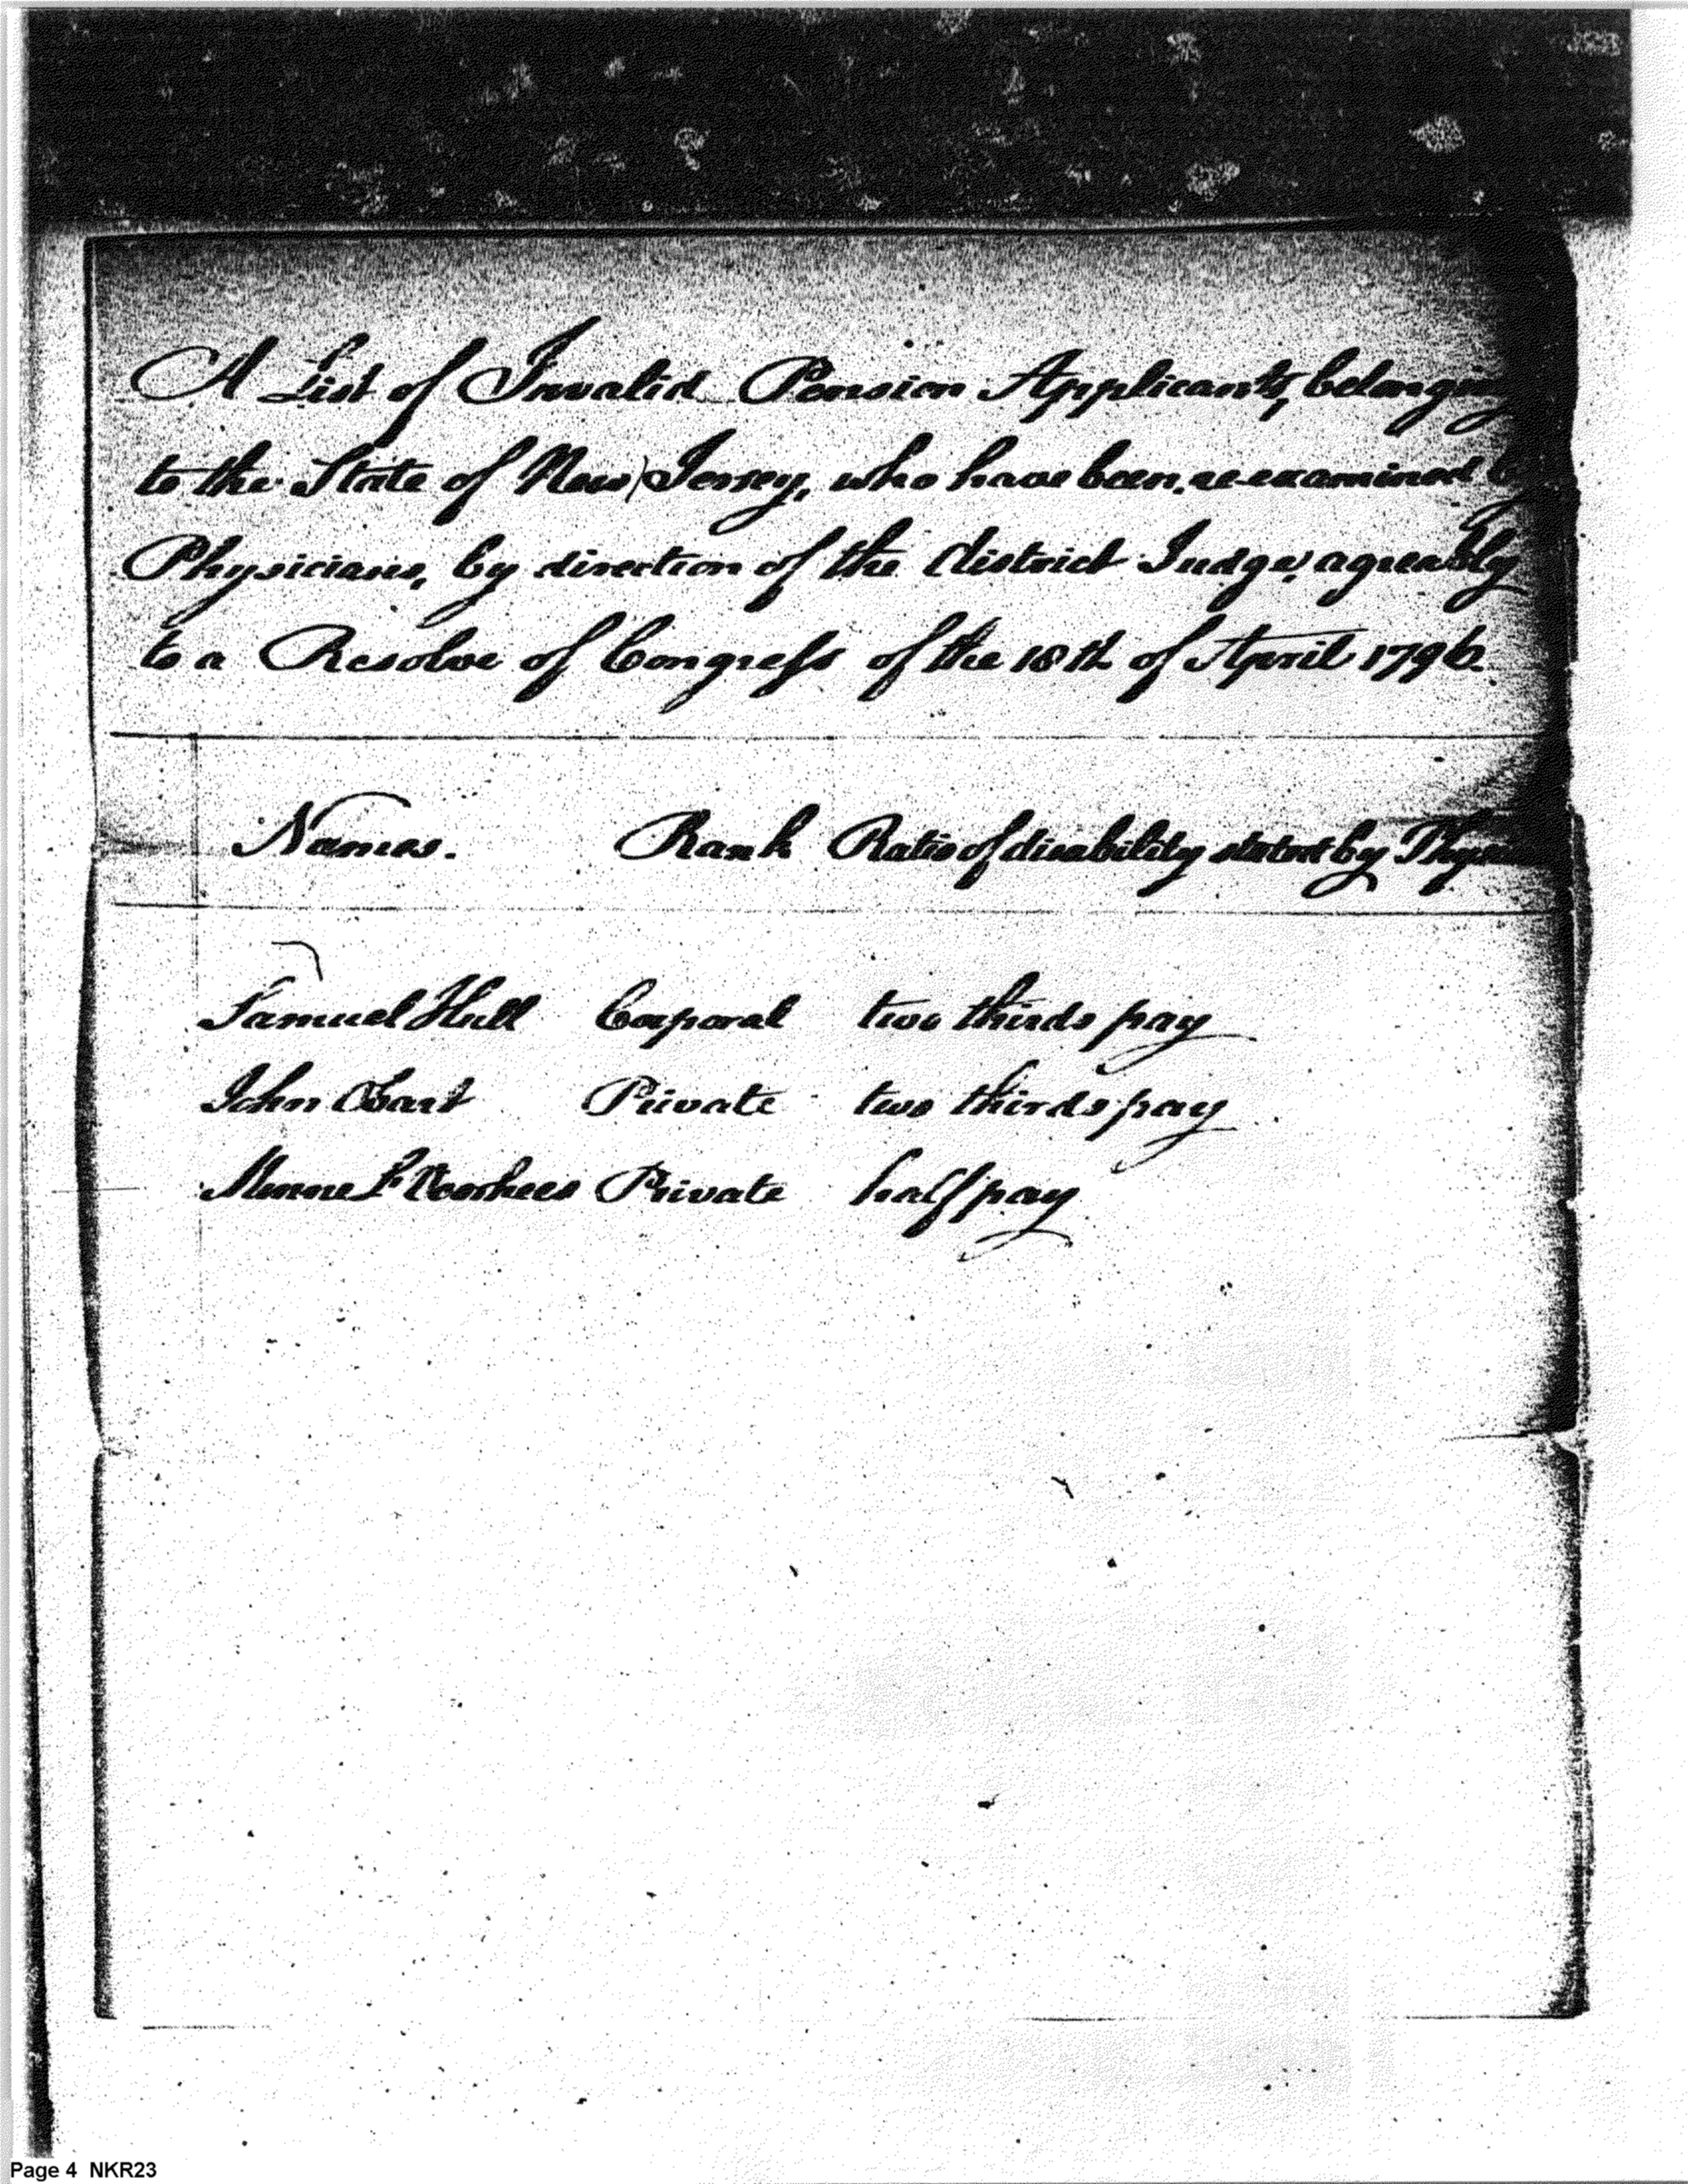 A List of Invalid Pension Applicants, belonging
to the State of New Jersey, who have been re-examined by
Physicians, by direction of the district Judge, agreably
to a Resolve of Congress of the 18th of April 1796.
Names. Rank Ratio of disability stated by
Samuel Hull Corporal two thirds pay
John Obart Private two thirds pay
Minne L. Voorhees Private half pay
Page 4 NKR23